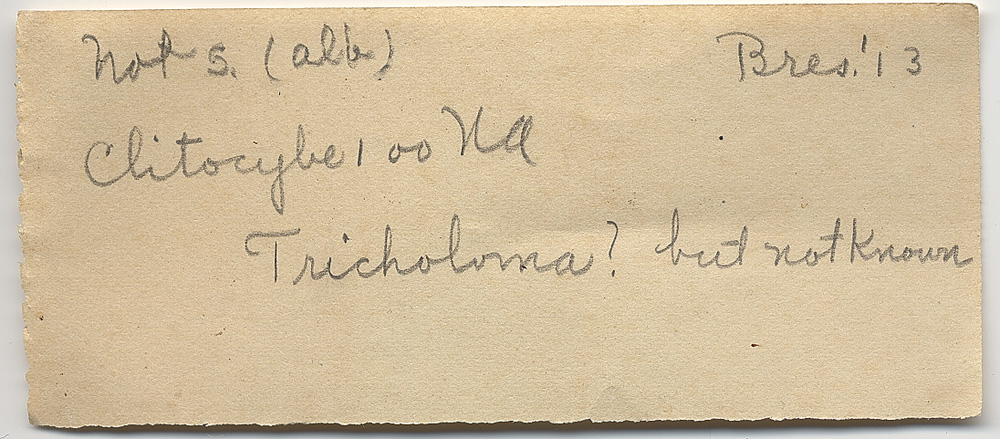 Not s. (alb) Bres.'13
Clitocybe 100 Na
Tricholoma? but not Known